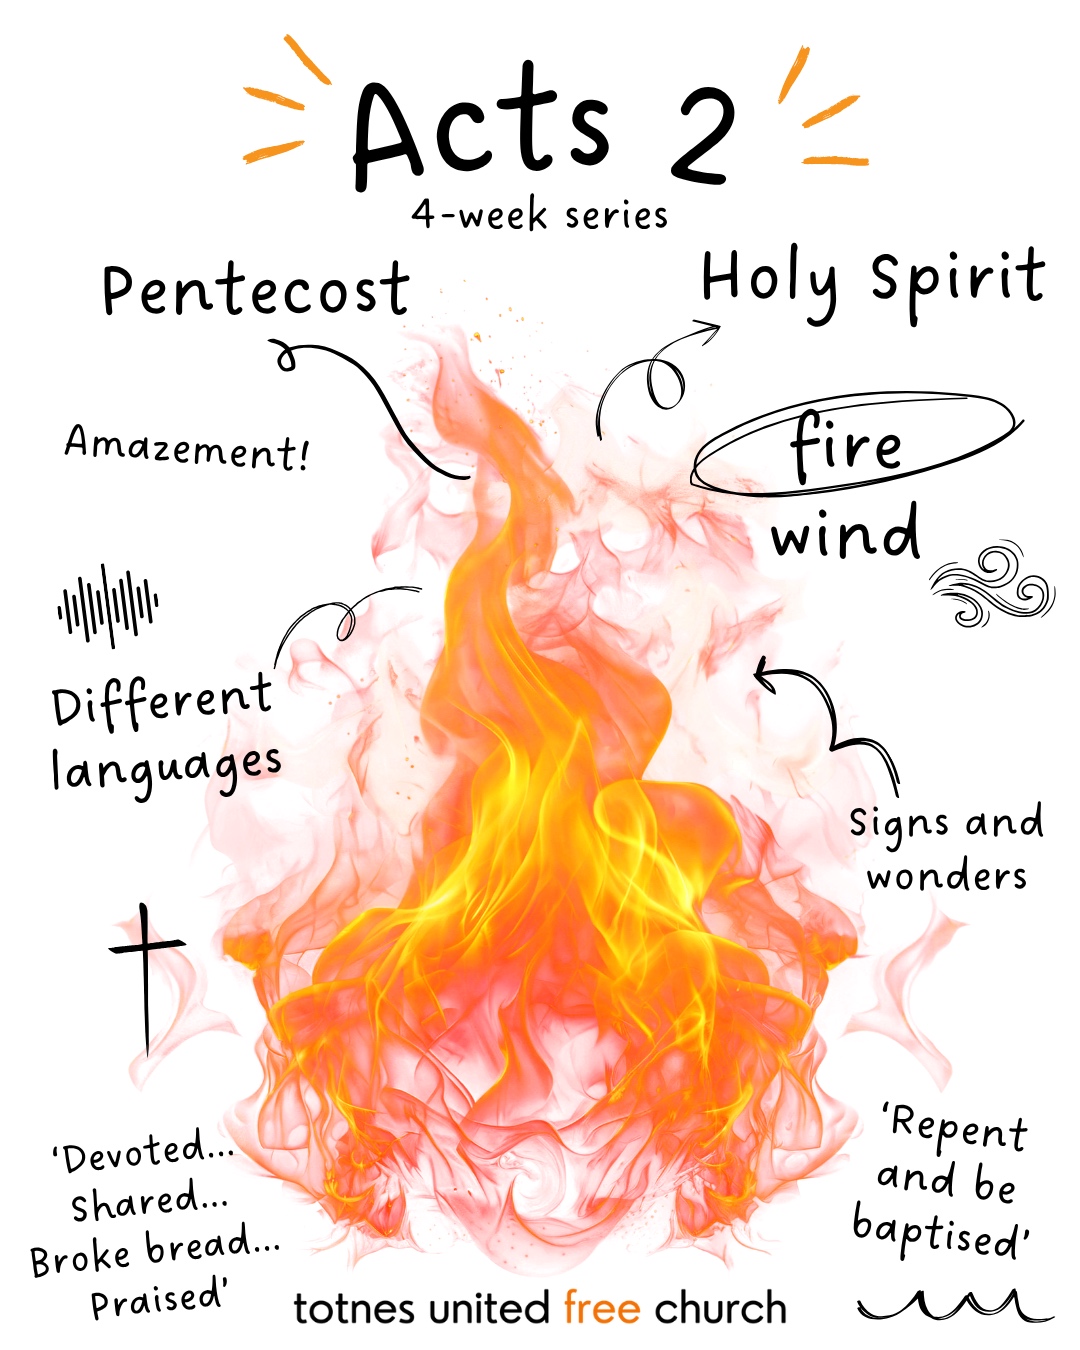 Acts 2
4-week series
Pentecost
Holy Spirit
Amazement!
fire
wind
Different
languages
Signs and
wonders
'Devoted...
Shared...
Broke bread...
Praised'
'Repent
and be
baptised'
totnes united free church